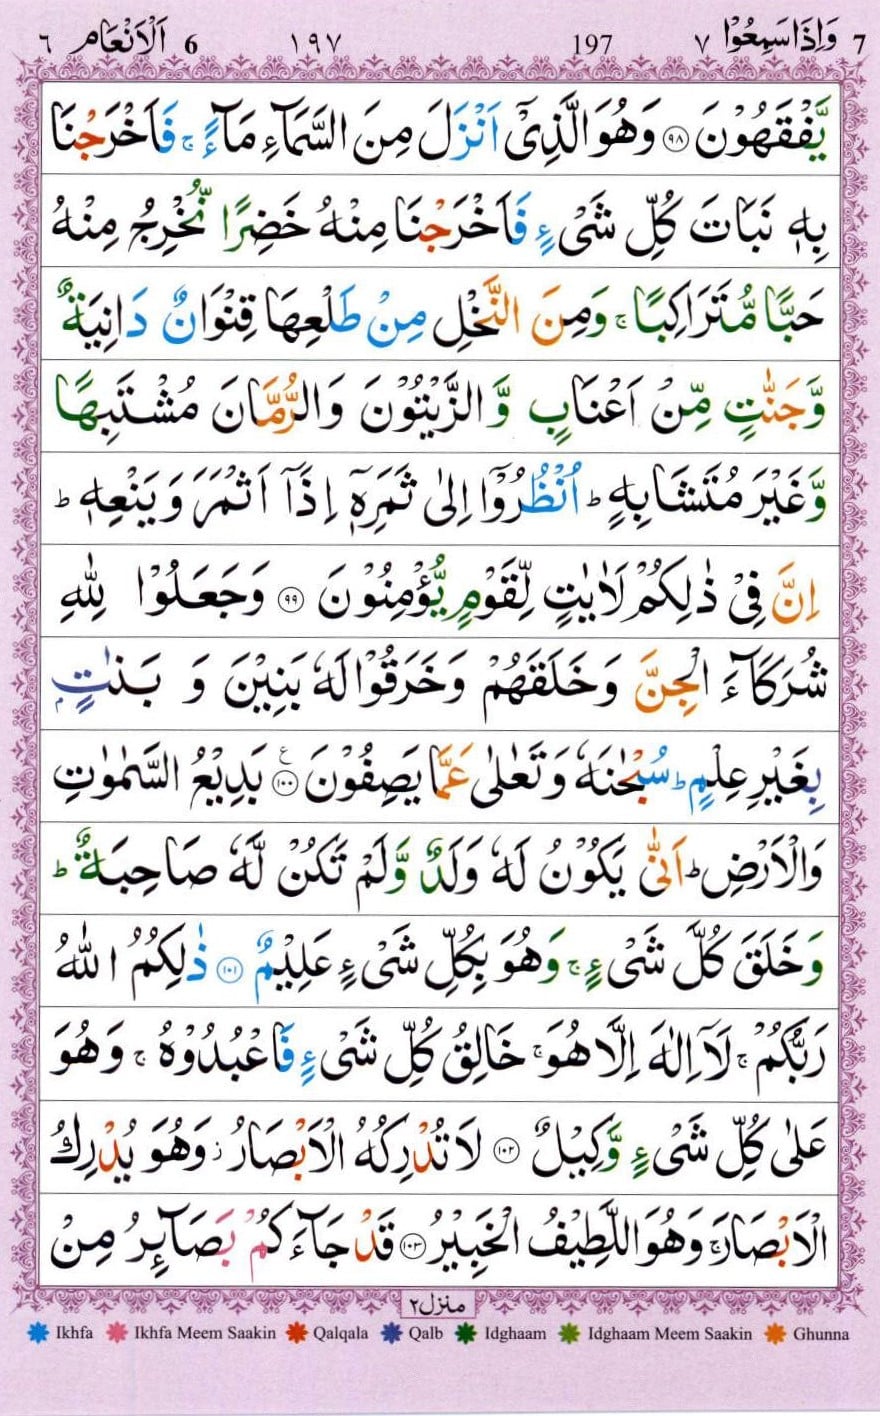 7 وَاِذَا سَمِعُوْا ٧ 197 ١٩٧ 6 اَلْاَنْعَام ٦
يَّفْقَهُوْنَ ۝٩٨ وَهُوَ الَّذِىْٓ اَنْزَلَ مِنَ السَّمَآءِ مَآءً ۚ فَاَخْرَجْنَا
بِهٖ نَبَاتَ كُلِّ شَىْءٍ فَاَخْرَجْنَا مِنْهُ خَضِرًا نُّخْرِجُ مِنْهُ
حَبًّا مُّتَرَاكِبًا ۚ وَمِنَ النَّخْلِ مِنْ طَلْعِهَا قِنْوَانٌ دَانِيَةٌ
وَّجَنّٰتٍ مِّنْ اَعْنَابٍ وَّالزَّيْتُوْنَ وَالرُّمَّانَ مُشْتَبِهًا
وَّغَيْرَ مُتَشَابِهٍ ؕ اُنْظُرُوْٓا اِلٰى ثَمَرِهٖٓ اِذَآ اَثْمَرَ وَيَنْعِهٖ ؕ
اِنَّ فِىْ ذٰلِكُمْ لَاٰيٰتٍ لِّقَوْمٍ يُّؤْمِنُوْنَ ۝٩٩ وَجَعَلُوْا لِلّٰهِ
شُرَكَآءَ الْجِنَّ وَخَلَقَهُمْ وَخَرَقُوْا لَهٗ بَنِيْنَ وَ بَنٰتٍۭ
بِغَيْرِ عِلْمٍ ؕ سُبْحٰنَهٗ وَتَعٰلٰى عَمَّا يَصِفُوْنَ ۝١٠٠ ع بَدِيْعُ السَّمٰوٰتِ
وَالْاَرْضِ ؕ اَنّٰى يَكُوْنُ لَهٗ وَلَدٌ وَّلَمْ تَكُنْ لَّهٗ صَاحِبَةٌ ؕ
وَخَلَقَ كُلَّ شَىْءٍ ۚ وَهُوَ بِكُلِّ شَىْءٍ عَلِيْمٌ ۝١٠١ ذٰلِكُمُ اللّٰهُ
رَبُّكُمْ ۚ لَآ اِلٰهَ اِلَّا هُوَ ۚ خَالِقُ كُلِّ شَىْءٍ فَاعْبُدُوْهُ ۚ وَهُوَ
عَلٰى كُلِّ شَىْءٍ وَّكِيْلٌ ۝١٠٢ لَا تُدْرِكُهُ الْاَبْصَارُ ز وَهُوَ يُدْرِكُ
الْاَبْصَارَ ۚ وَهُوَ اللَّطِيْفُ الْخَبِيْرُ ۝١٠٣ قَدْ جَآءَكُمْ بَصَآئِرُ مِنْ
منزل ٢
Ikhfa Ikhfa Meem Saakin Qalqala Qalb Idghaam Idghaam Meem Saakin Ghunna